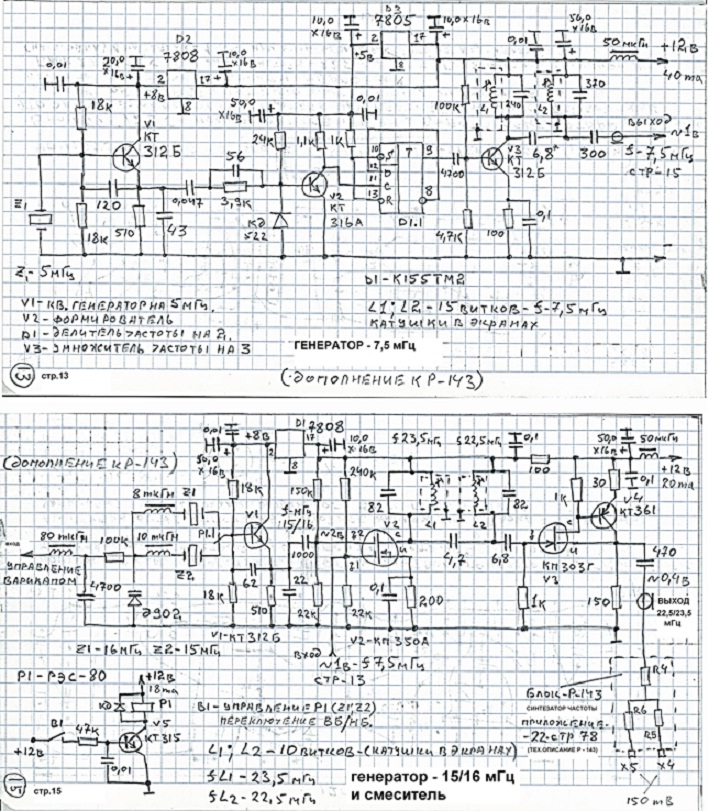 10,0
×16В
D3
7805
10,0×16В
0,01
50,0
×16В
50 мкГн
+12В
40 ma
D2
7808
20,0
×16В
10,0
×16В
0,01
2
17
8
+8В
+5В
2
17
8
18К
V1
КТ
312Б
50,0
×16В
24К
1,1К
1К
0,01
100К
L1
240
L2
370
ВЫХОД
~1В
f-7,5мГц
СТР-15
6,8
300
V3
КТ
312Б
4700
10
S
D
C
R
T
9
8
13
D1.1
56
3,9К
0,047
V2
КТ
316А
КД
522
Z1
120
18К
510
43
4,7К
100
0,1
Z1-5мГц
D1-К155ТМ2
V1-КВ.ГЕНЕРАТОР НА 5мГц.
V2-ФОРМИРОВАТЕЛЬ
D1-ДЕЛИТЕЛЬ ЧАСТОТЫ НА 2,
V3-УМНОЖИТЕЛЬ ЧАСТОТЫ НА 3
L1; L2-15 ВИТКОВ-f-7,5мГц
КАТУШКИ В ЭКРАНАХ
ГЕНЕРАТОР - 7,5 мГц
13
стр.13
(ДОПОЛНЕНИЕ К Р-143)
(ДОПОЛНЕНИЕ К Р-143)
0,01
+8В
D1
7808
2
17
8
10,0
×16В
50,0
×16В
f 23,5мГц
f 22,5мГц
0,1
100
50,0
×16В
50мкГн
+12В
20ma
0,1
30
V4
КТ361
1К
18К
150К
240К
f-мГц
15/16
82
L1
L2
82
8 мкГн
Z1
80 мкГн
100К
10 мкГн
Z2
P1.1
V1
1000
~2В
V2
4,7
6,8
КП303Г
V3
470
~0,4В
ВЫХОД
22,5/23,5
мГц
УПРАВЛЕНИЕ
ВАРИКАПОМ
4700
Д902
18К
62
510
22
22К
22К
0,1
200
1К
150
V1-КТ312Б
V2-КП350А
Z1-16мГц Z2-15мГц
ВХОД
~1В-f7,5мГц
СТР-13
Р1-РЭС-80
+12В
18ma
КД
P1
V5
КТ315
В1
47К
+12В
0,01
В1-УПРАВЛЕНИЕ Р1(21,22)
ПЕРЕКЛЮЧЕНИЕ ВБ/НБ.
L1; L2-10 ВИТКОВ-(КАТУШКИ В ЭКРАНАХ)
fL1-23,5мГц
fL2-22,5мГц
БЛОК-Р-143
СИНТЕЗАТОР ЧАСТОТЫ
ПРИЛОЖЕНИЕ-
-22-СТР 78
(ТЕХ.ОПИСАНИЕ Р -143)
R4
R6
R5
X5
X4
150mВ
генератор - 15/16 мГц
и смеситель
15
стр.15